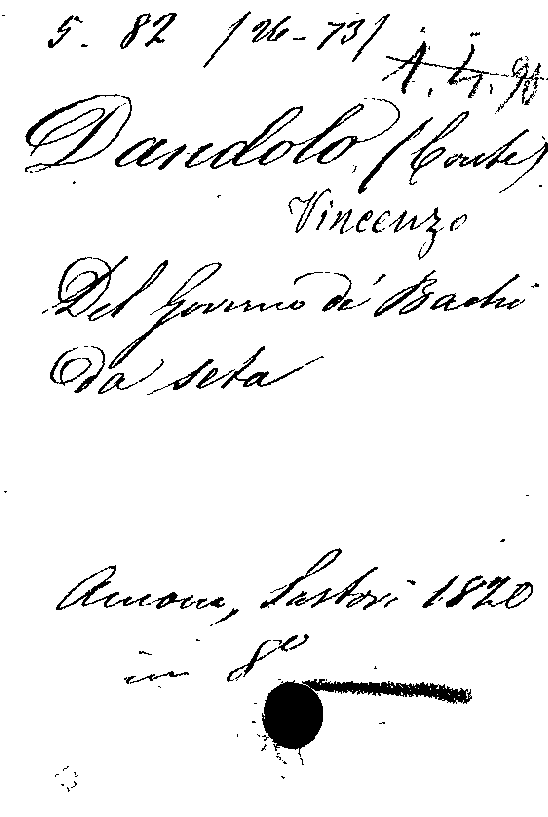 5. 82 (26-73)
1. 4. 90
Dandolo, (Conte)
Vincenzo
Del Governo de' Bachi
da seta
Ancona, Sartori 1820
in 8º